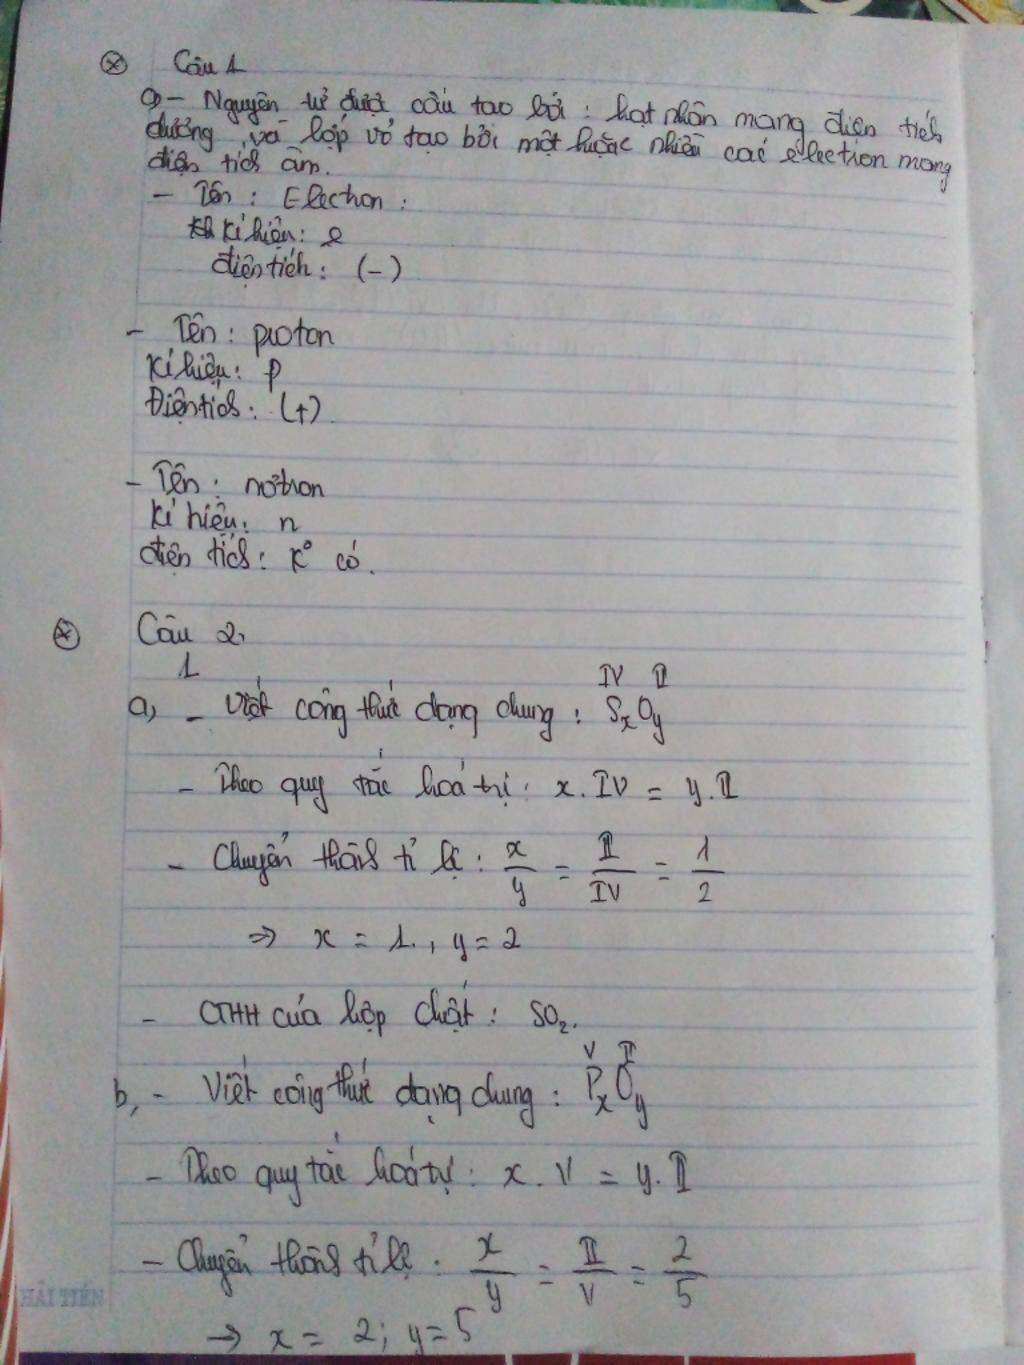 Câu 1
a, - Nguyên tử được cấu tạo bởi : hạt nhân mang điện tích
dương và lớp vỏ tạo bởi một hoặc nhiều các election mang
điện tích âm.
- Tên : Electron :
kí hiệu: e
điện tích : (-)
- Tên : proton
Kí hiệu : p
Điện tích : (+)
- Tên : nơtron
Kí hiệu : n
điện tích : K° có.
Câu 2,
1
IV II
a, - Viết công thức dạng chung : SxOy
- Theo quy tắc hoá trị : x . IV = y . II
- Chuyển thành tỉ lệ : x/y = II/IV = 1/2
=> x = 1 , y = 2
- CTHH của hộp chất : SO₂.
V II
b, - Viết công thức dạng chung : PxOy
- Theo quy tắc hoá trị : x . V = y . II
- Chuyển thành tỉ lệ : x/y = II/V = 2/5
-> x = 2 ; y = 5
HẢI TIẾN